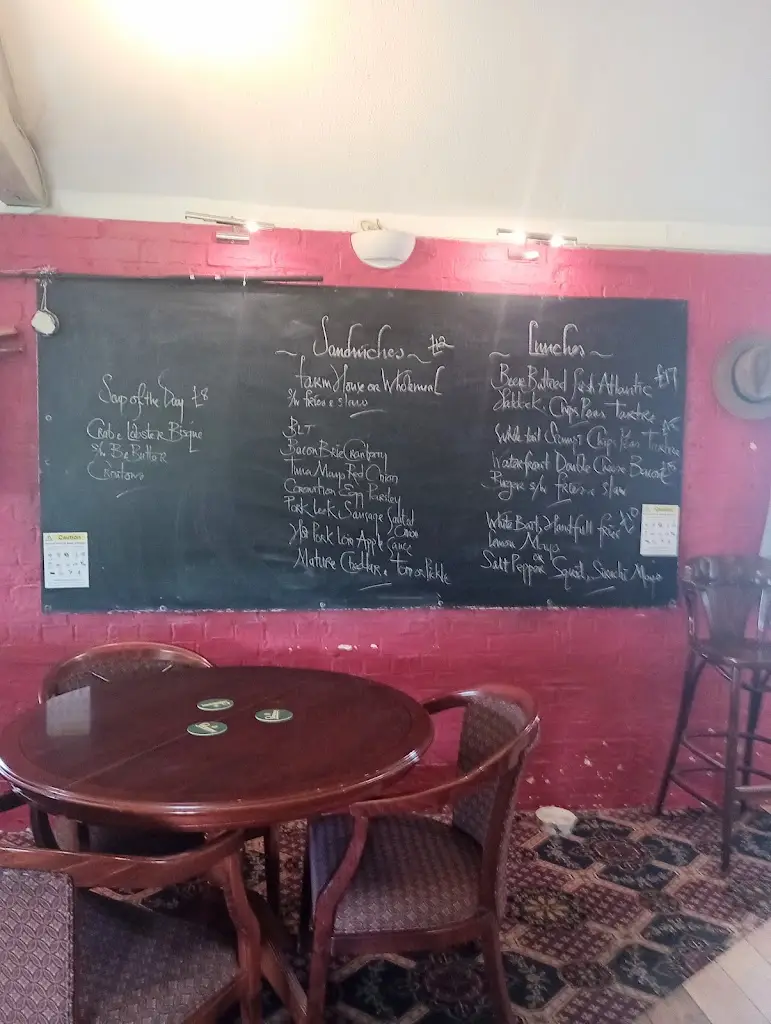 Soup of the Day £8
Crab & Lobster Bisque
s/w B&Butter
Croutons
~ Sandwiches ~ £12
Farm House on Wholemeal
s/w fries & slaw
BLT
Bacon Brie Cranberry
Tuna Mayo Red Onion
Coronation Egg Parsley
Pork Leek Sausage Sauted
Onion
Hot Pork Loin Apple Sauce
Mature Cheddar & Tom or Pickle
~ Lunches ~
Beer Battered Fish Atlantic £17
Haddock. Chips Peas Tartare
Whole tail Scampi Chips Peas Tartare
Waterfront Double Cheese Bacon
Burger s/w fries & slaw
White Bait, Handfull fries
Lemon Mayo
or
Salt Pepper Squid, Siracha Mayo
CAUTION
CAUTION